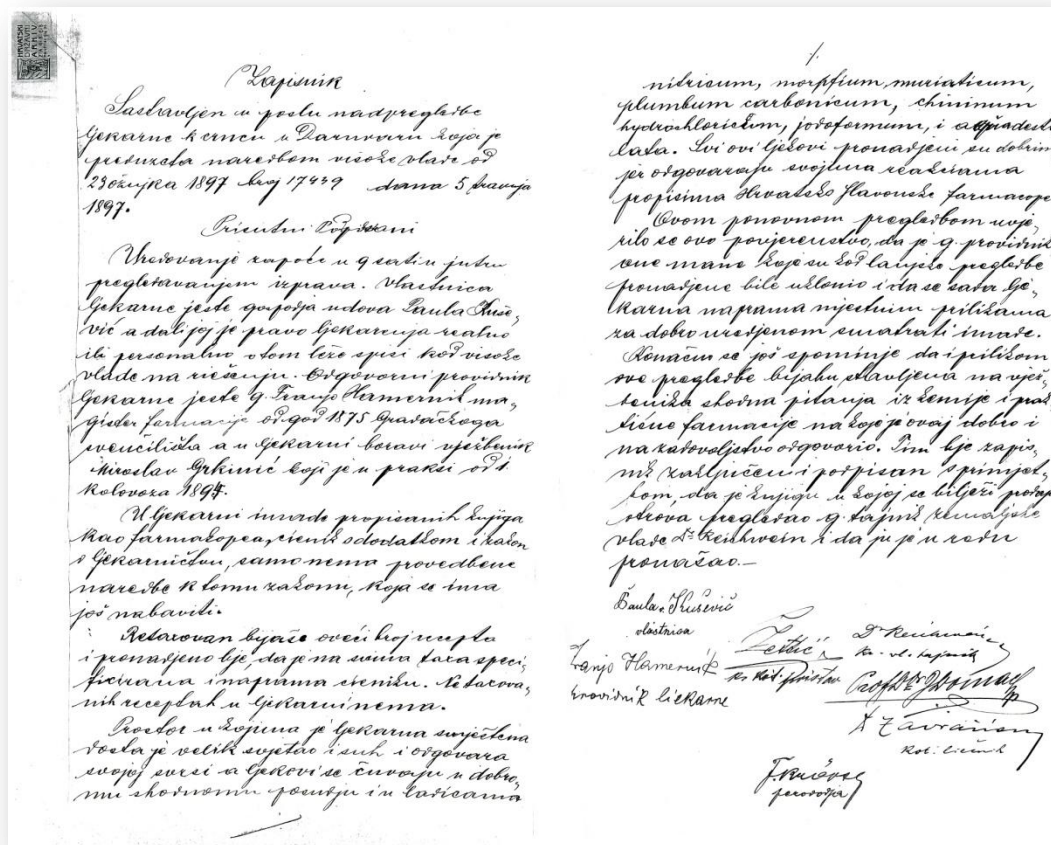 HRVATSKI
DRŽAVNI
ARHIV
Zapisnik
Sastavljen u poslu nadpregledbe
ljekarne k crncu u Daruvaru koja je
preduzeta naredbom visoke vlade od
23 ožujka 1897 broj 17439 dana 5 travnja
1897.
Prisutni Podpisani
Uredovanje započe u 9 sati u jutru
pregledavanjem izprava. Vlastnica
ljekarne jeste gospodja udova Paula Kuše„
vić a dali joj je pravo ljekarenja realno
ili personalno o tom leže spisi kod visoke
vlade na riešenju. Odgovorni providnik
ljekarne jeste g. Franjo Hamernik ma„
gister farmacije od god 1875 Gradačkoga
sveučilišta a u ljekarni boravi vježbenik
Miroslav Grkinić koji je u praksi od 1
Kolovoza 1894.
U ljekarni imade propisanih knjiga
kao farmakopea, cienik s dodatkom i zakon
o ljekarničtvu, samo nema provedbene
naredbe k tomu zakonu, koja se ima
još nabaviti.
Retaxovan bijaše oveći broj recepta
i pronadjeno bje, da je na svima taxa speci„
ficirana i naprama cieniku. Netaxova„
nih receptah u ljekarni nema.
Prostor u kojima je ljekarna smještena
dosta je velik svjetao i suh i odgovara
svojoj svrsi a ljekovi se čuvaju u dobro„
mu shodnomu posudju i u ladicama
/.
nitricum, morphium muriaticum,
plumbum carbonicum, chininum
hydrochloricum, jodoformum, i aqua desti
lata. Svi ovi ljekovi pronadjeni su dobrim
jer odgovaraju svojima reakciama
propisima Hrvatsko Slavonske farmacope
Ovom ponovnom pregledbom uvje„
rilo se ovo povjerenstvo, da je g. providnik
one mane koje su kod lanjske pregledbe
pronadjene bile uklonio i da se sada lje„
karna naprama mjestnim prilikama
za dobro uredjenom smatrati imade.
Konačno se još spominje da i prilikom
ove pregledbe bijahu stavljena na vjež„
benika shodna pitanja iz kemije i prak
tične farmacije na koje je ovaj dobro i
na zadovoljstvo odgovorio. Tim bje zapis„
nik zaključen i podpisan s primjet„
bom, da je knjigu u kojoj se bilježi
otrova pregledao g. tajnik zemaljske
vlade Dr Reichwein i da ju je u redu
pronašao.—
Paula Kušević
vlastnica
Franjo Hamernik
providnik liekarne
kr. kot. pristav
kr. vl. tajnik
Prof Dr
kot. liečnik
perovodja